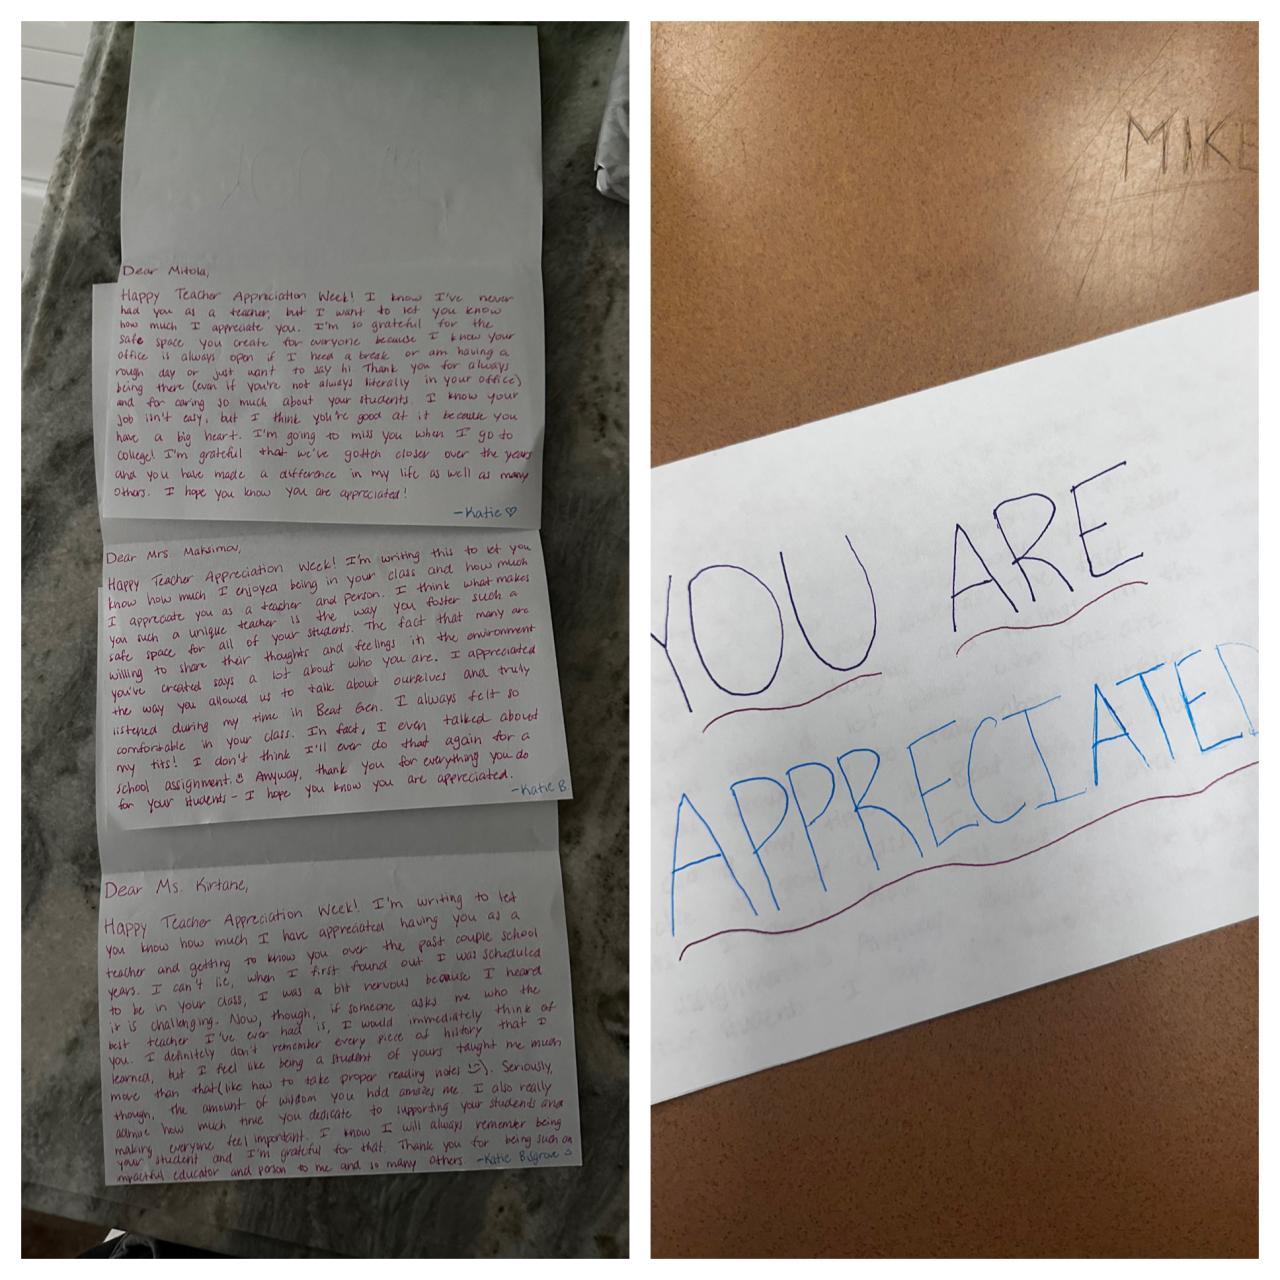 Dear Mitola,
Happy Teacher Appreciation Week! I know I've never
had you as a teacher, but I want to let you know
how much I appreciate you. I'm so grateful for the
safe space you create for everyone because I know your
office is always open if I need a break or am having a
rough day or just want to say hi. Thank you for always
being there (even if you're not always literally in your office)
and for caring so much about your students. I know your
job isn't easy, but I think you're good at it because you
have a big heart. I'm going to miss you when I go to
college! I'm grateful that we've gotten closer over the years
and you have made a difference in my life as well as many
others. I hope you know you are appreciated!
-Katie ♡
Dear Mrs. Maksimov,
Happy Teacher Appreciation Week! I'm writing this to let you
know how much I enjoyed being in your class and how much
I appreciate you as a teacher and person. I think what makes
you such a unique teacher is the way you foster such a
safe space for all of your students. The fact that many are
willing to share their thoughts and feelings in the environment
you've created says a lot about who you are. I appreciated
the way you allowed us to talk about ourselves and truly
listened during my time in Beat Gen. I always felt so
comfortable in your class. In fact, I even talked about
my tits! I don't think I'll ever do that again for a
school assignment. Anyway, thank you for everything you do
for your students - I hope you know you are appreciated.
-Katie B.
Dear Ms. Kirtane,
Happy Teacher Appreciation Week! I'm writing to let
you know how much I have appreciated having you as a
teacher and getting to know you over the past couple school
years. I can't lie, when I first found out I was scheduled
to be in your class, I was a bit nervous because I heard
it is challenging. Now, though, if someone asks me who the
best teacher I've ever had is, I would immediately think of
you. I definitely don't remember every piece of history that I
learned, but I feel like being a student of yours taught me much
more than that (like how to take proper reading notes :)). Seriously,
though, the amount of wisdom you hold amazes me. I also really
admire how much time you dedicate to supporting your students and
making everyone feel important. I know I will always remember being
your student and I'm grateful for that. Thank you for being such an
impactful educator and person to me and so many others. -Katie Bisgrove
MIKE
YOU ARE
APPRECIATED